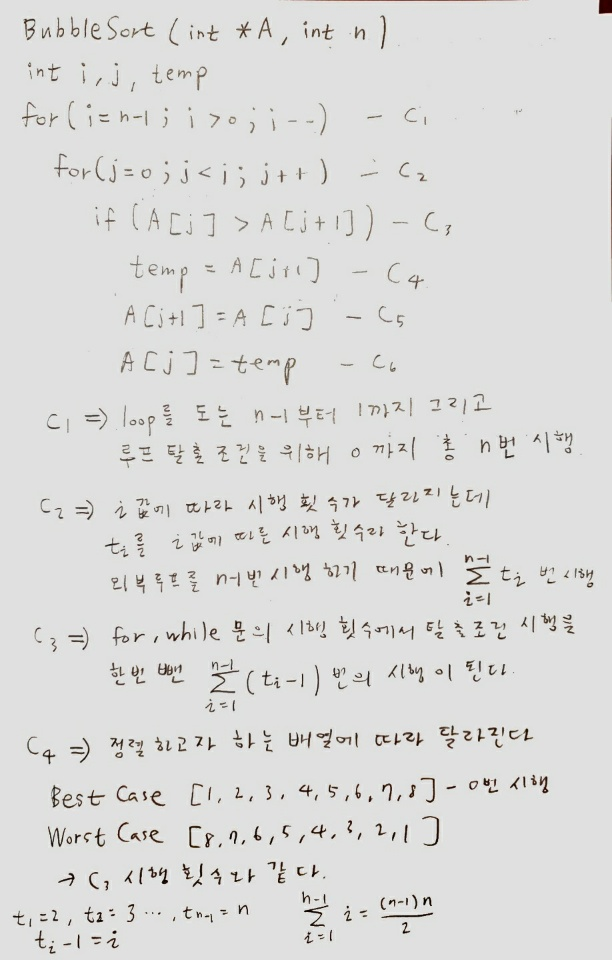 BubbleSort (int *A, int n)
int i, j, temp
for (i=n-1; i>0; i--) - C₁
for(j=0; j<i; j++) - C₂
if (A[j] > A[j+1]) - C₃
temp = A[j+1] - C₄
A[j+1] = A[j] - C₅
A[j] = temp - C₆
C₁ ⇒ loop를 도는 n-1부터 1까지 그리고
루프 탈출 조건을 위해 0까지 총 n번 시행
C₂ ⇒ i 값에 따라 시행 횟수가 달라지는데
tᵢ를 i 값에 따른 시행 횟수라 한다.
외부루프를 n-1번 시행 하기 때문에 \sum_{i=1}^{n-1} tᵢ 번 시행
C₃ ⇒ for, while 문의 시행 횟수에서 탈출조건 시행을
한번 뺀 \sum_{i=1}^{n-1} (tᵢ-1) 번의 시행이 된다.
C₄ ⇒ 정렬 하고자 하는 배열에 따라 달라진다
Best Case [1, 2, 3, 4, 5, 6, 7, 8] - 0번 시행
Worst Case [8, 7, 6, 5, 4, 3, 2, 1]
→ C₃ 시행 횟수와 같다.
t₁=2, t₂=3 ⋯, tₙ₋₁=n \sum_{i=1}^{n-1} i = \frac{(n-1)n}{2}
tᵢ-1=i